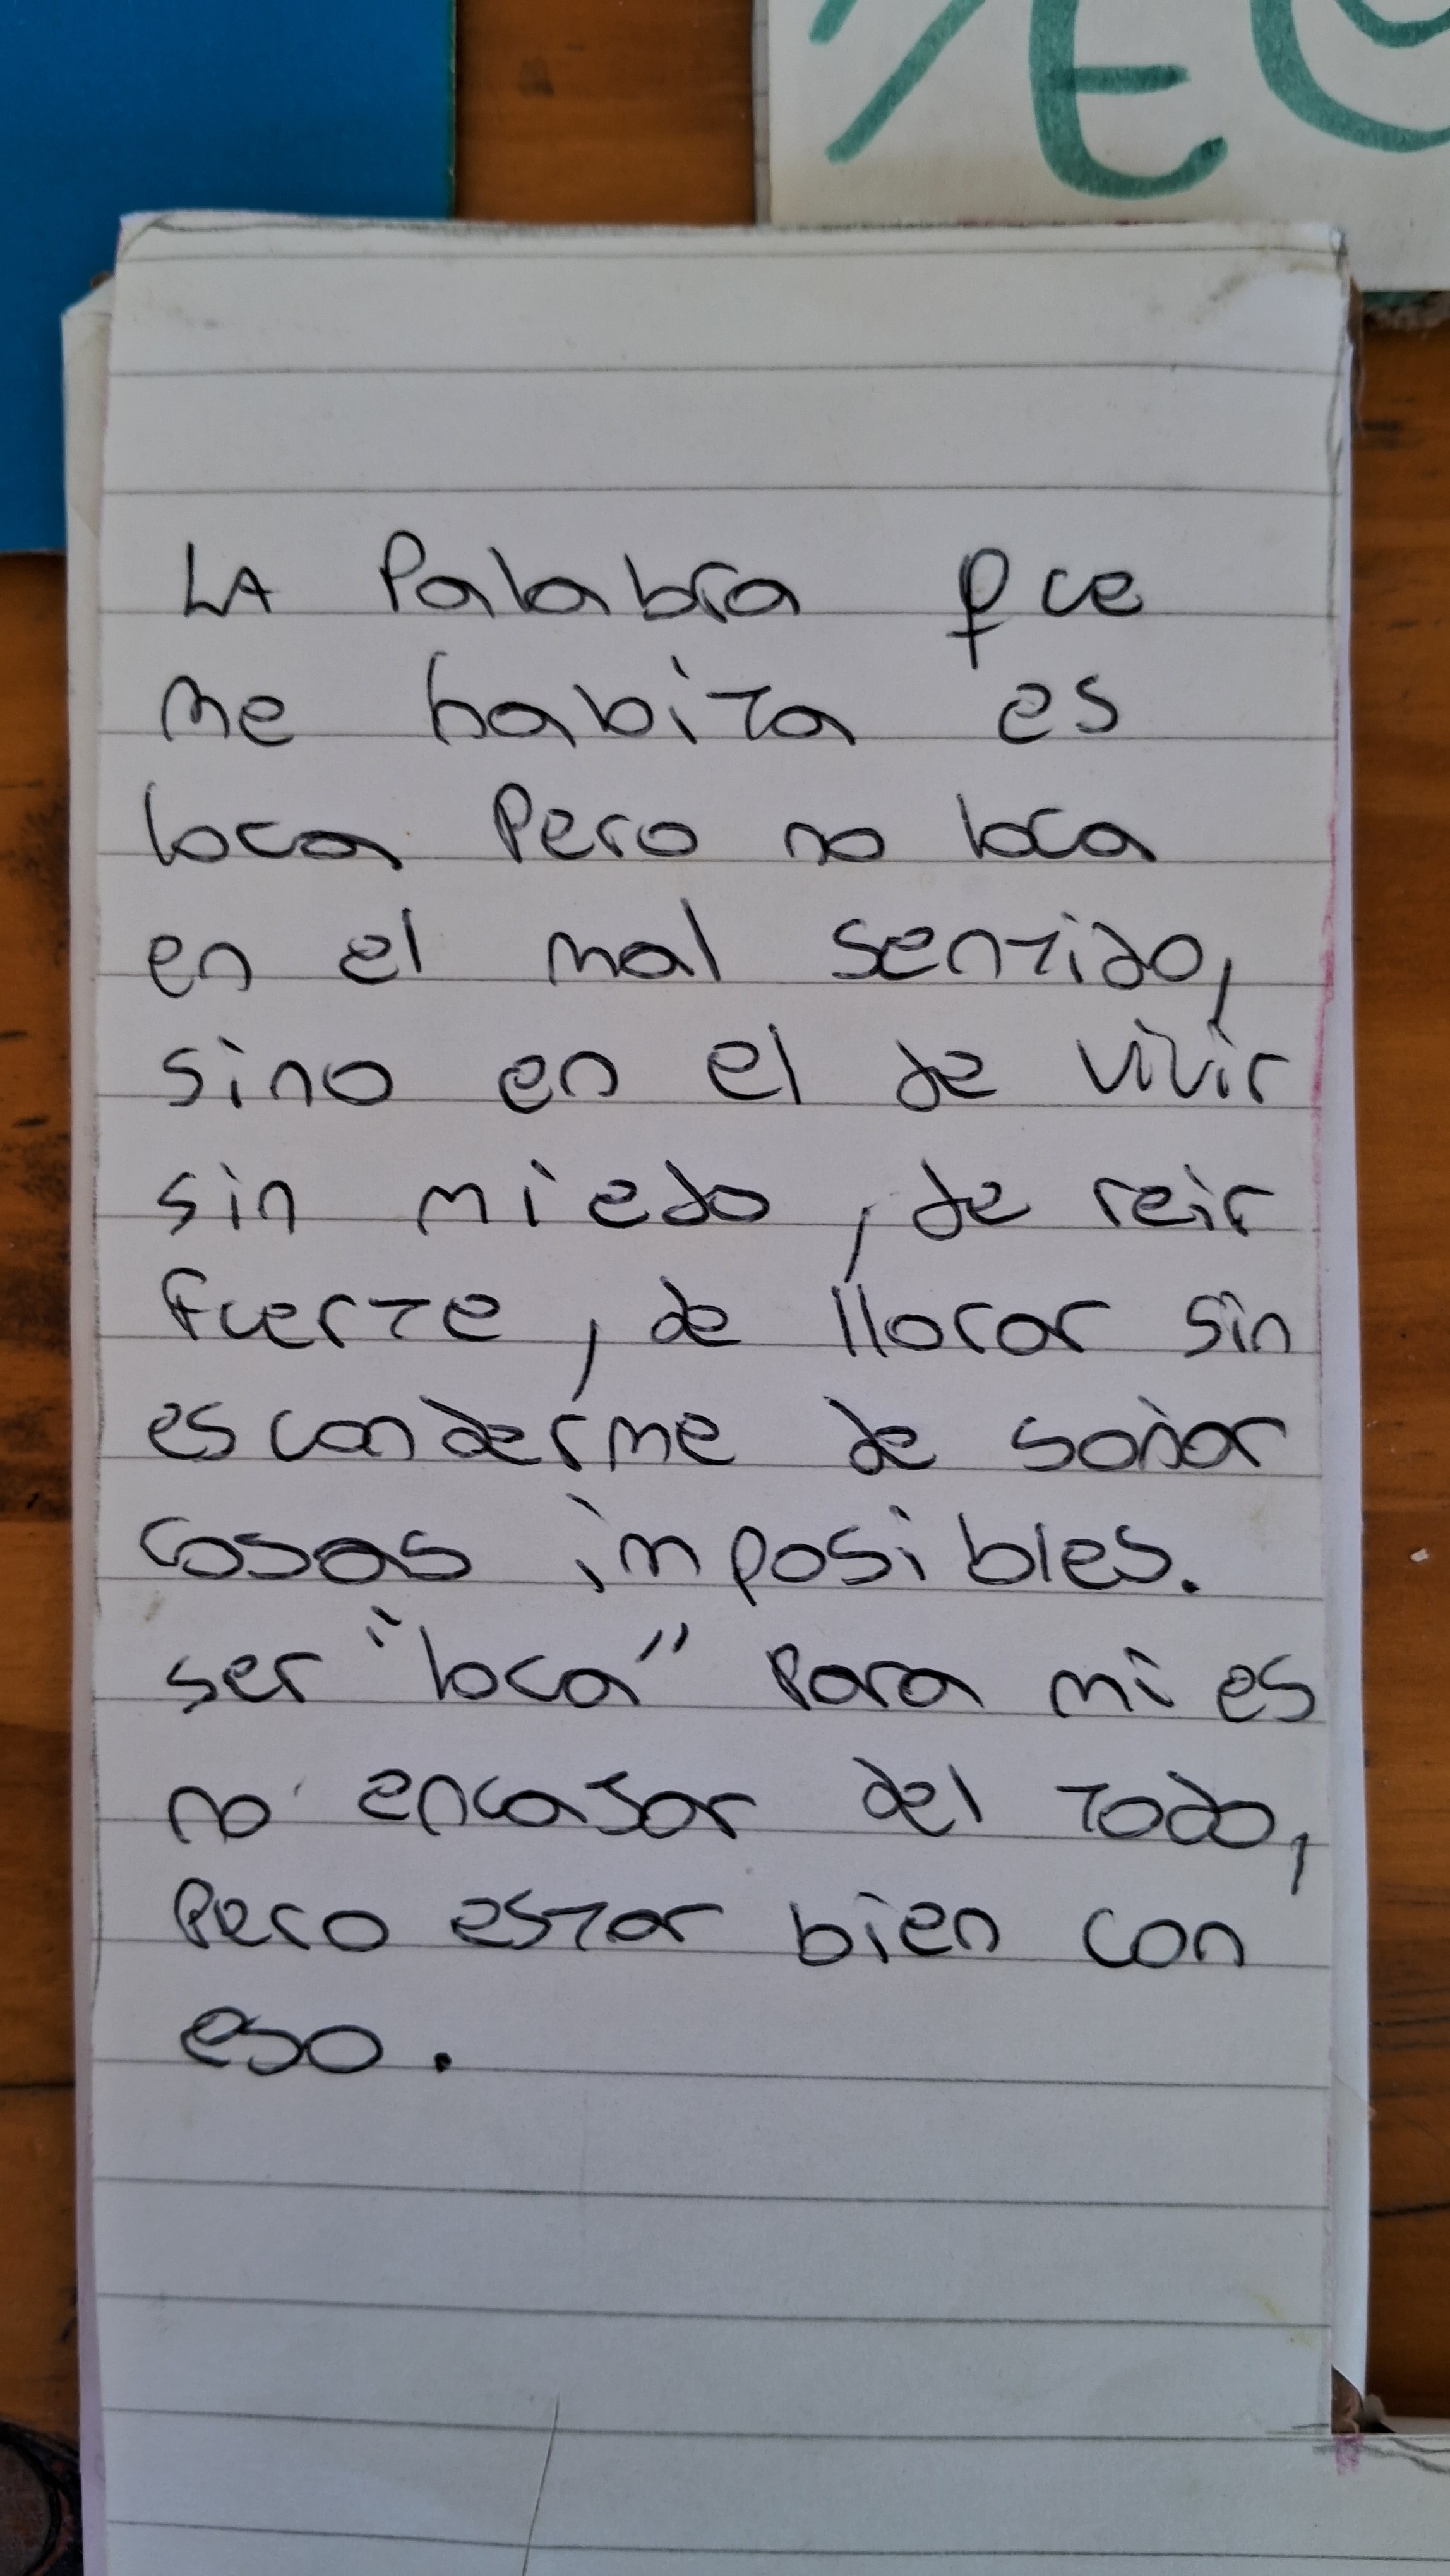 LA Palabra que
me habita es
loca Pero no loca
en el mal sentido,
sino en el de vivir
sin miedo, de reir
fuerte, de llorar sin
esconderme de soñar
cosas imposibles.
ser "loca" para mi es
no encajar del todo,
Pero estar bien con
eso.